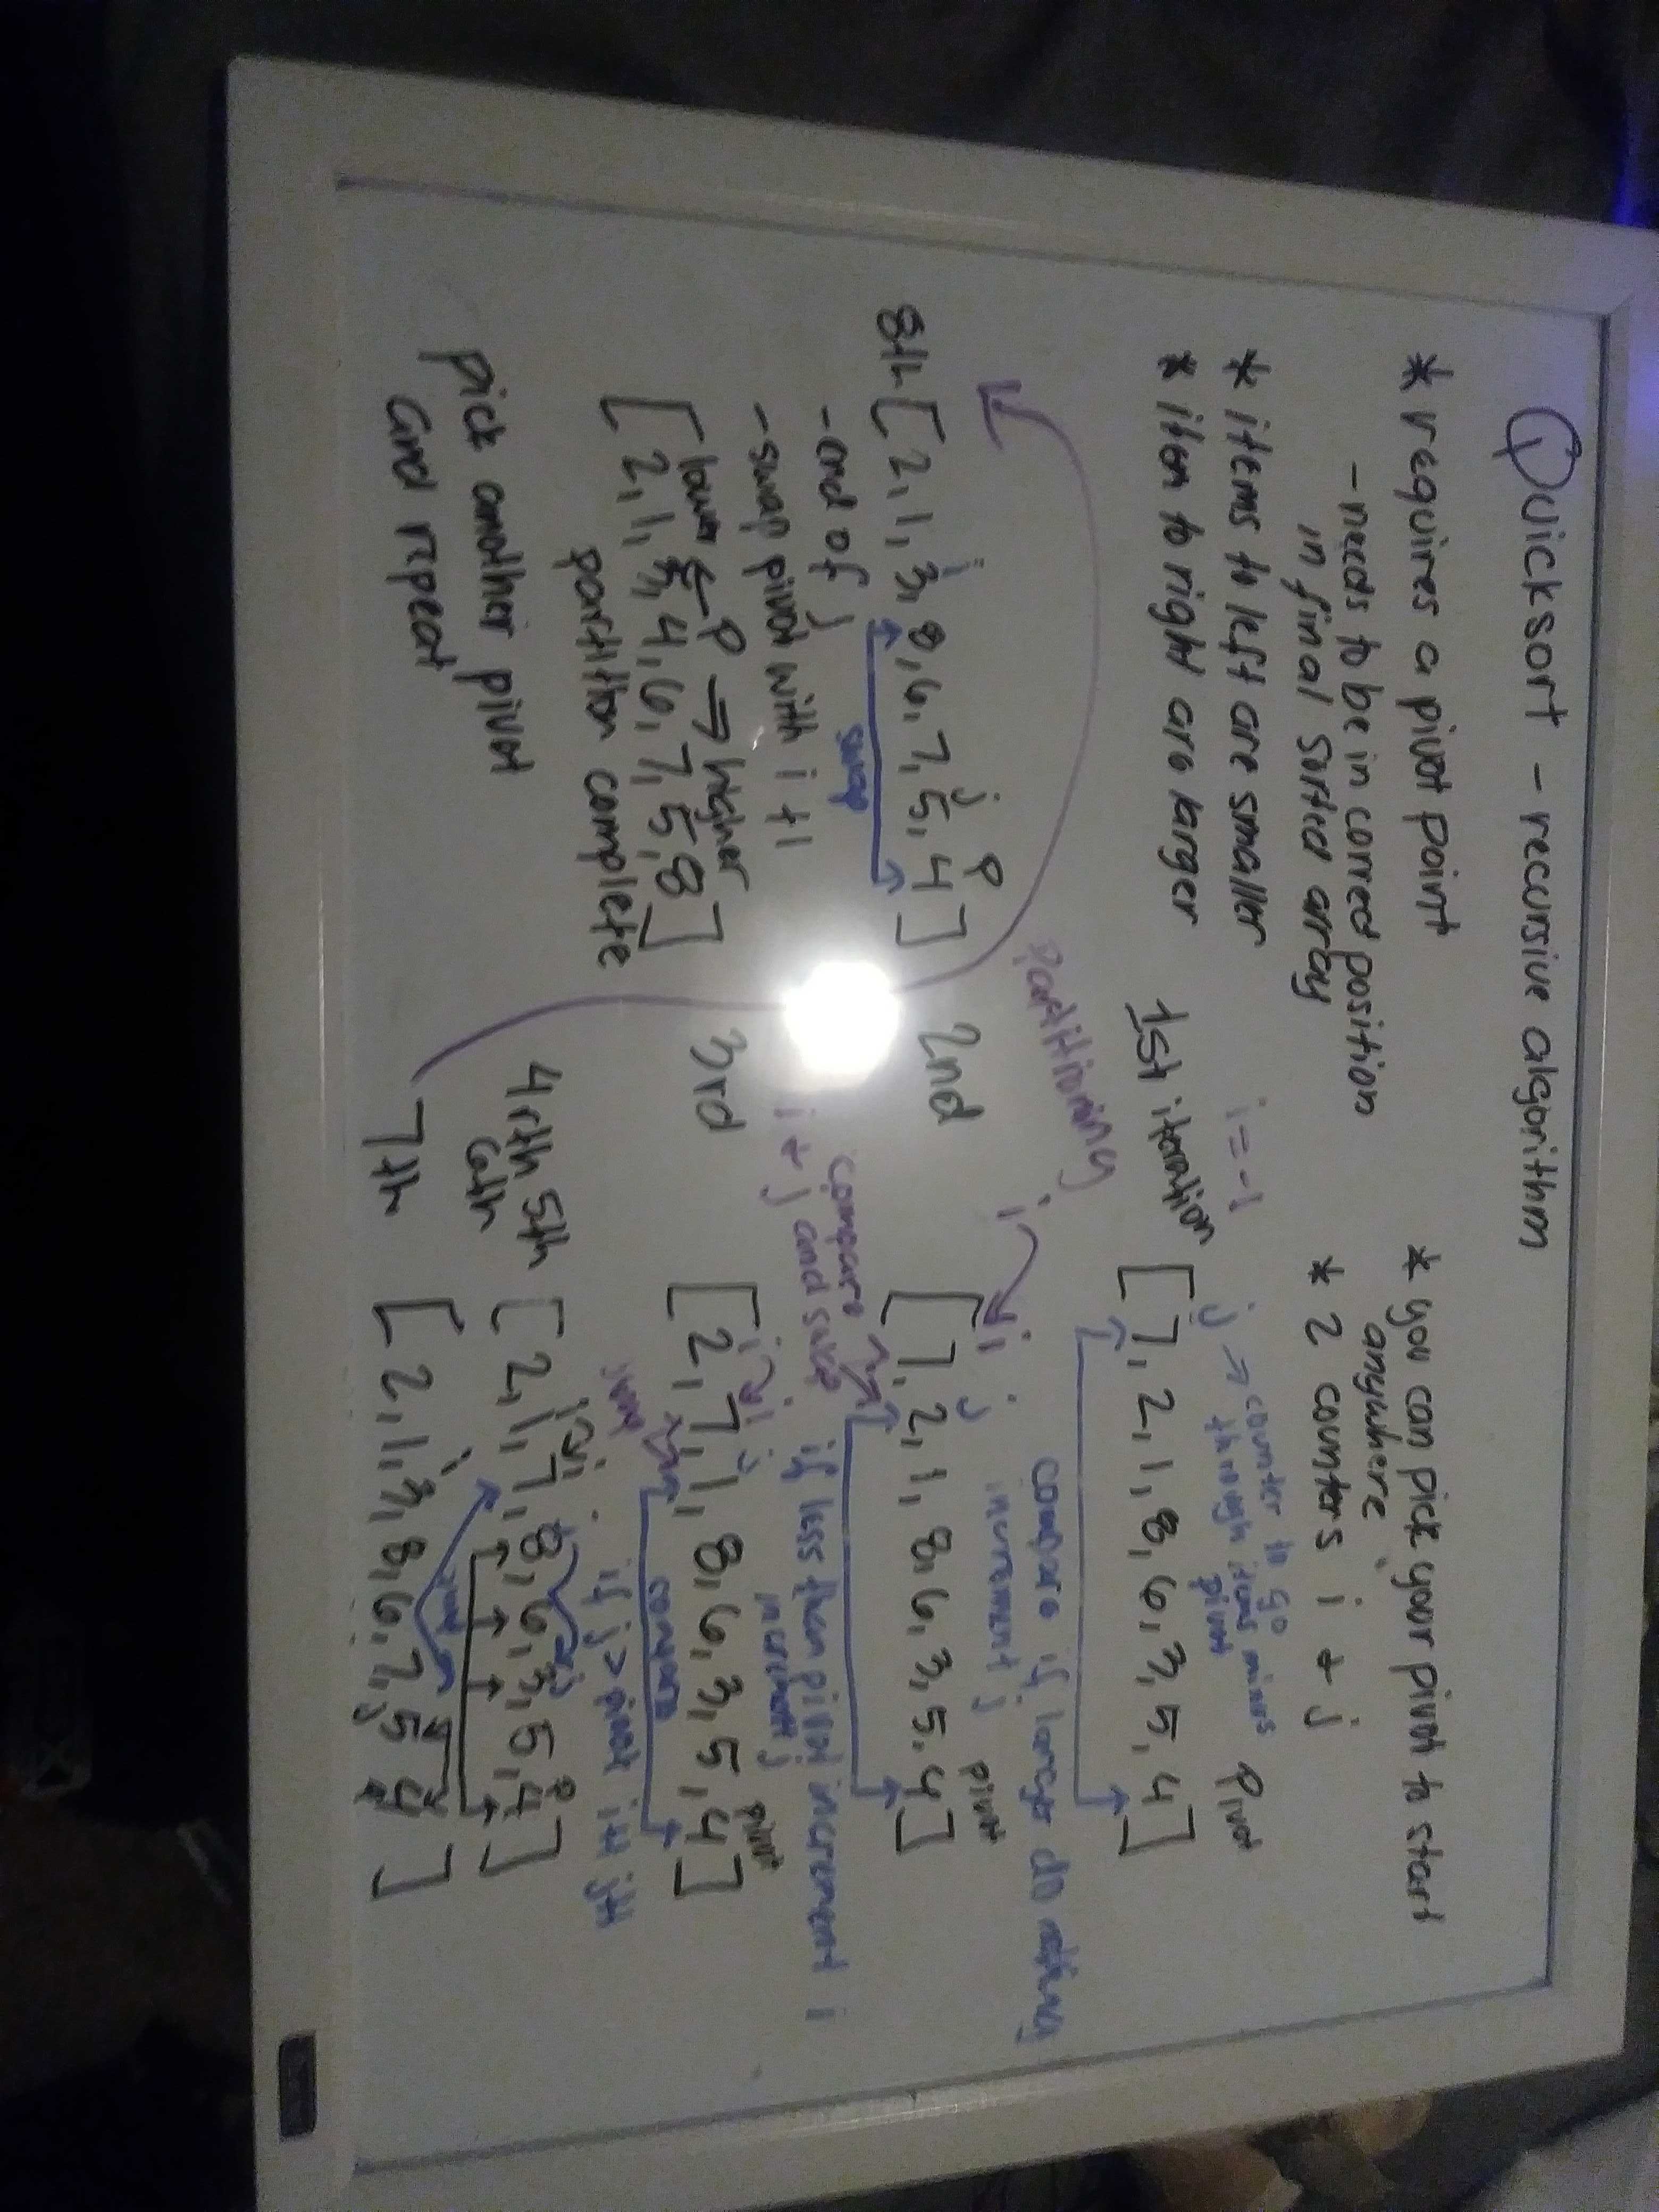 Quicksort - recursive algorithm
* requires a pivot point
- needs to be in correct position
in final sorted array
* items to left are smaller
* item to right are larger
* you can pick your pivot to start
anywhere
* 2 counters i & j
i = -1
j → counter to go
through items minus
pivot
Pivot
1st iteration
[7, 2, 1, 8, 6, 3, 5, 4]
compare if larger do nothing
increment j
Partitioning
i i j pivot
2nd
[7, 2, 1, 8, 6, 3, 5, 4]
compare
i & j and swap
if less than pivot increment i
increment j
i i j pivot
3rd
[2, 7, 1, 8, 6, 3, 5, 4]
compare
swap
if j > pivot i++ j++
i i j P
4rth 5th
6th
[2, 1, 7, 8, 6, 3, 5, 4]
i
7th
[2, 1, 3, 8, 6, 7, 5 4]
j P
i j P
8th [2, 1, 3, 8, 6, 7, 5, 4]
swap
- end of j
- swap pivot with i +1
lower ← P → higher
[2, 1, 3, 4, 6, 7, 5, 8]
partition complete
pick another pivot
and repeat